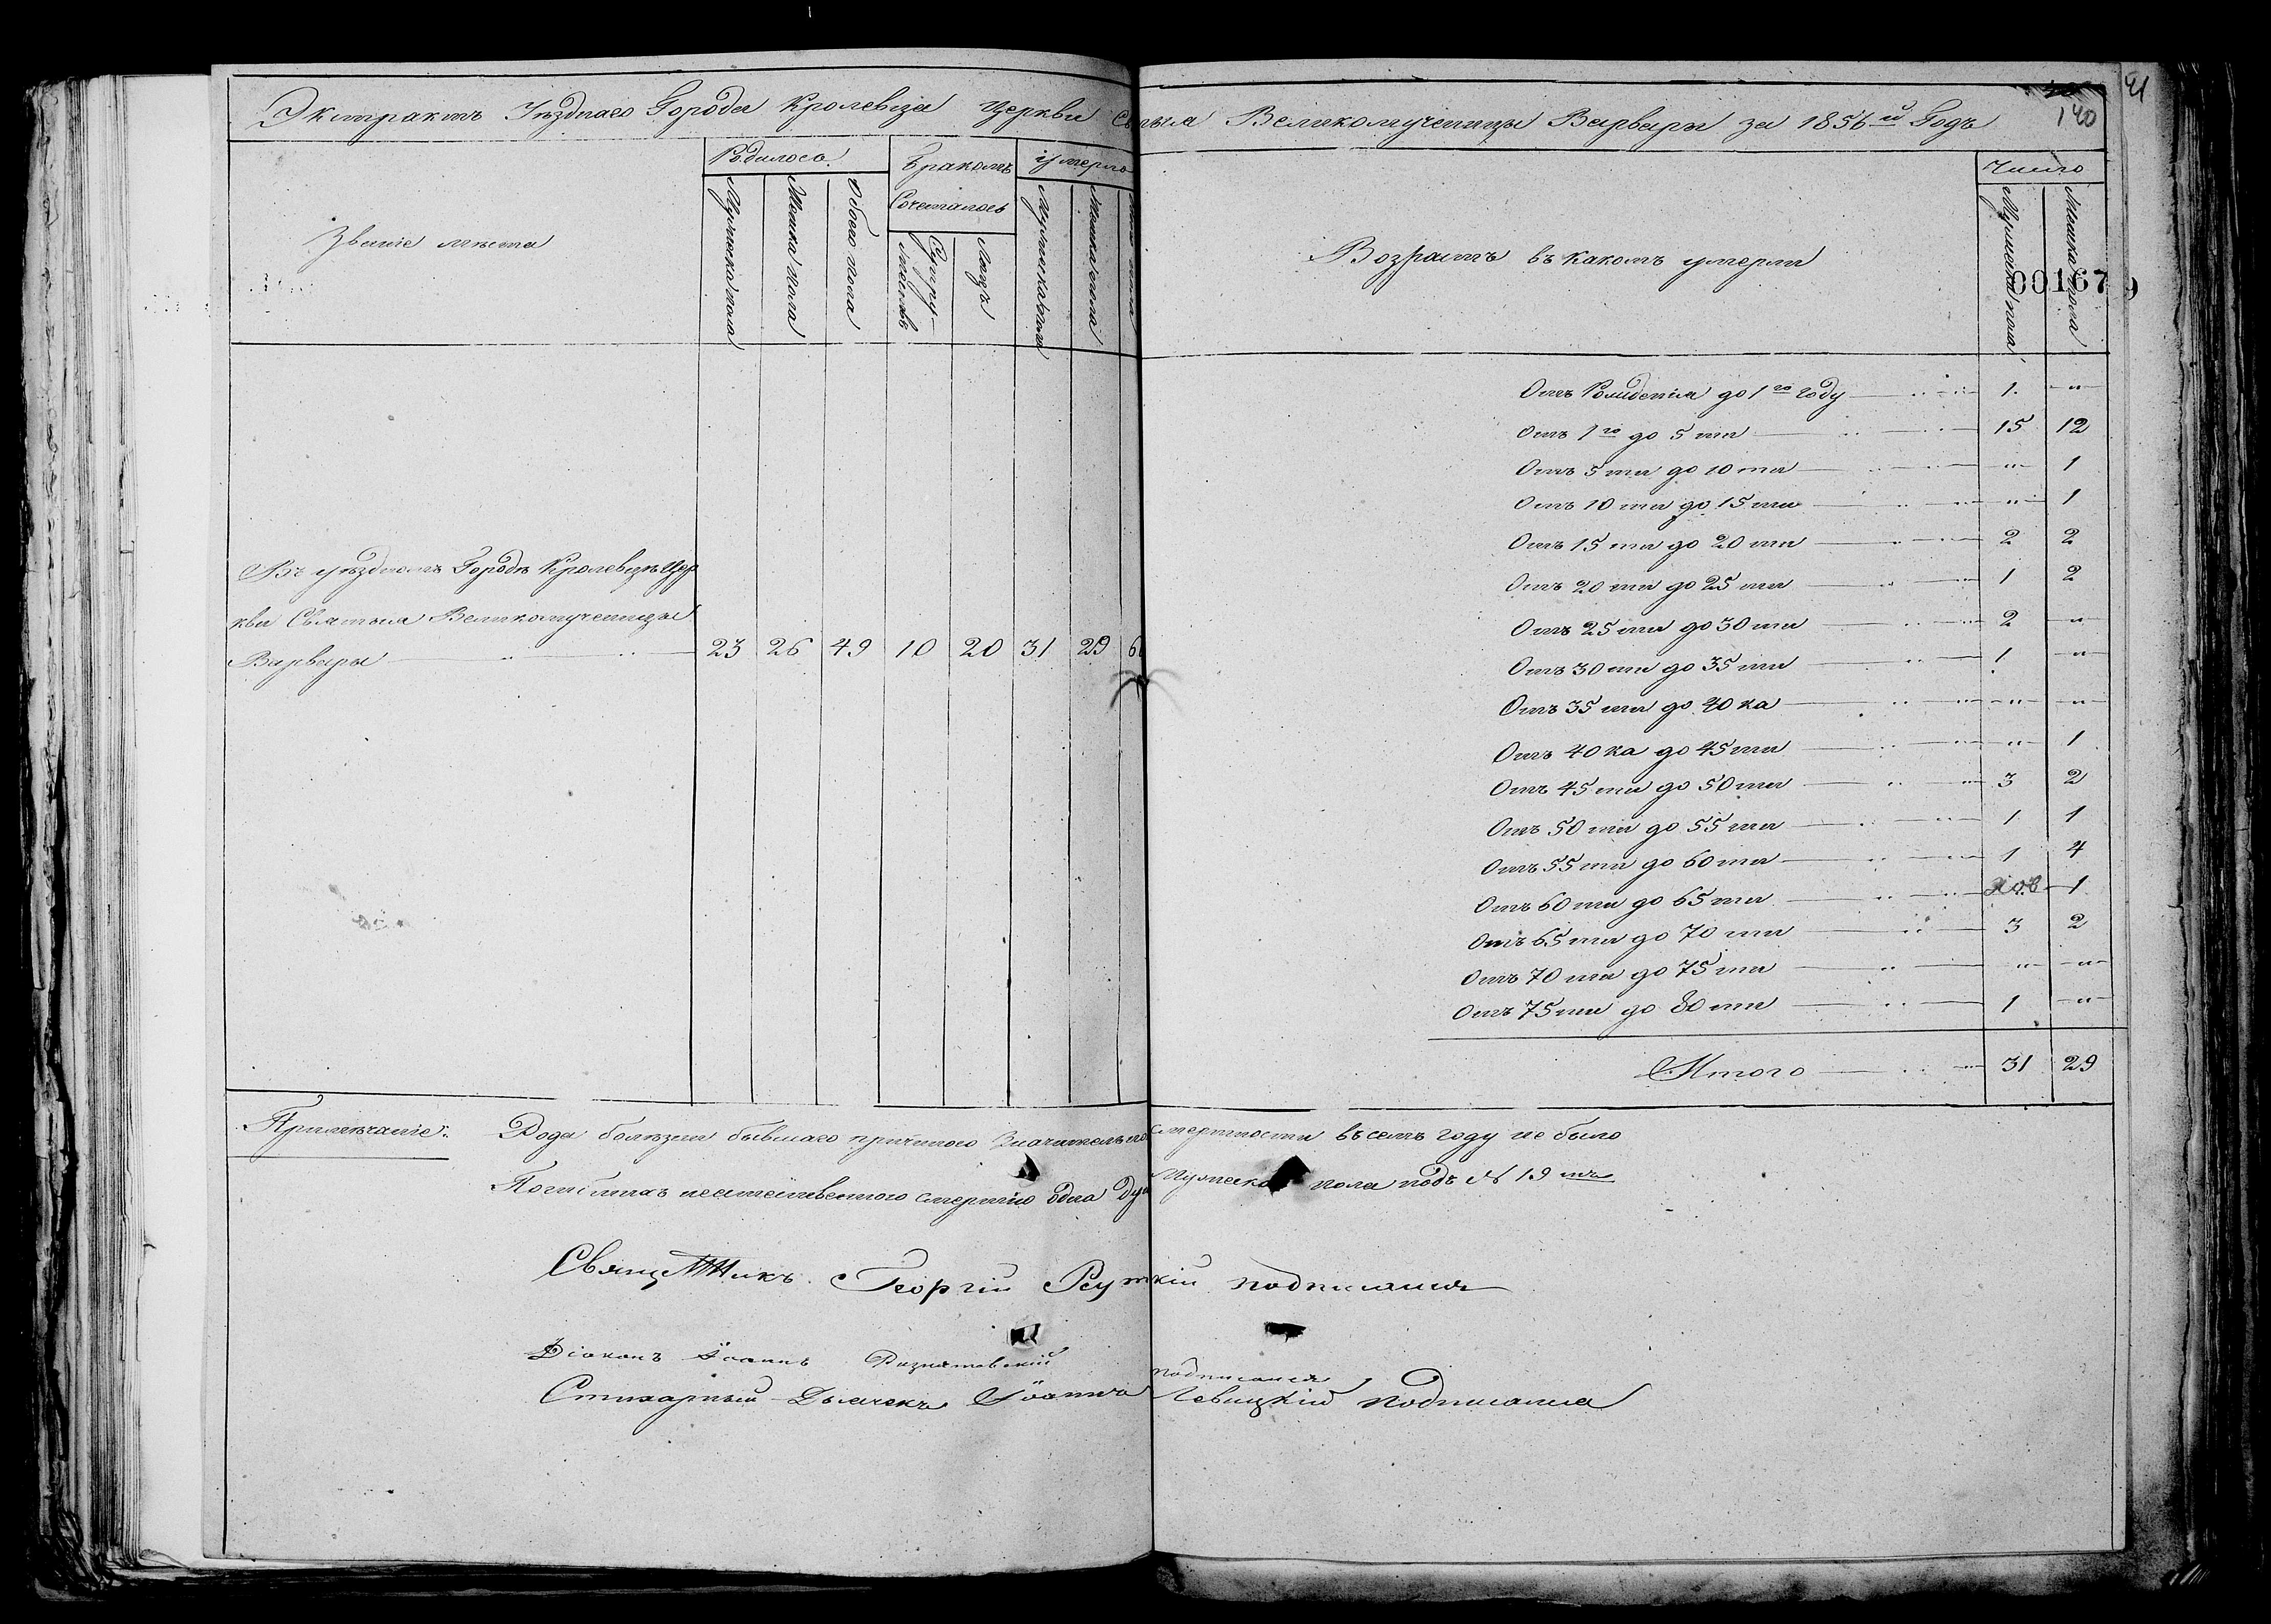 41
140
Экстрактъ Уѣзднаго Города Кролевца Церкви Святыя Великомученицы Варвары за 1856й Годъ
Званіе мѣста
Родилось
Мужеска пола
Женска пола
Обоего пола
Бракомъ Сочеталось
Супружествъ
Лицъ
Умерло
Мужеска пола
Женска пола
Возрастъ въ какомъ умерли
Число
Мужеска пола
Женска пола
001679
Въ уѣздномъ Городѣ Кролевцѣ Цер
кви Святыя Великомученицы
Варвары 23 26 49 10 20 31 29 6
Отъ Рожденія до 1го году 1. "
Отъ 1го до 5 ти 15 12
Отъ 5 ти до 10 ти " 1
Отъ 10 ти до 15 ти " 1
Отъ 15 ти до 20 ти 2 2
Отъ 20 ти до 25 ти 1 2
Отъ 25 ти до 30 ти 2 "
Отъ 30 ти до 35 ти 1 "
Отъ 35 ти до 40 ка " "
Отъ 40 ка до 45 ти " 1
Отъ 45 ти до 50 ти 3 2
Отъ 50 ти до 55 ти 1 1
Отъ 55 ти до 60 ти 1 4
Отъ 60 ти до 65 ти 1
Отъ 65 ти до 70 ти 3 2
Отъ 70 ти до 75 ти " "
Отъ 75 ти до 80 ти 1 "
Итого 31 29
Примѣчаніе: Рода болѣзни бывшаго причиною значительной смертности въ семъ году не было
Погибшихъ неестественною смертію одна душа Мужеска пола подъ № 19 мъ
Священникъ Георгій подписался
Діаконъ Іоаннъ подписался
Стихарный Дьячекъ Іоаннъ Левицкій подписался